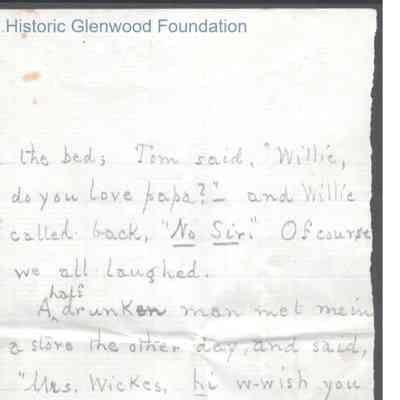 Historic Glenwood Foundation
the bed; Tom said, "Willie,
do you love papa?" and Willie
called back, "No Sir." Of course
we all laughed.
half
A drunken man met me in
a store the other day, and said,
"Mrs. Wickes, hi w-wish you